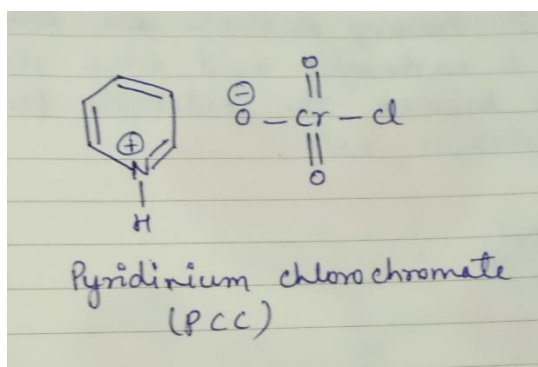 O
⊖
O – Cr – Cl
⊕
N
O
H
Pyridinium chlorochromate
(PCC)